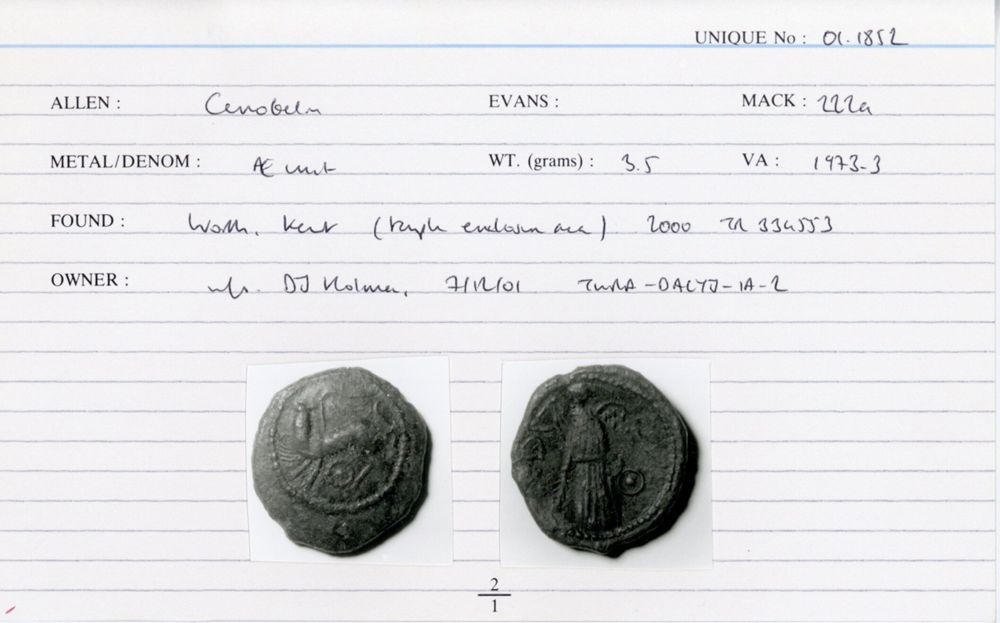 UNIQUE No : 01.1852
ALLEN : Cunobelin EVANS : MACK : 222a
METAL/DENOM : Æ unit WT. (grams) : 3.5 VA : 1973-3
FOUND : Worth, Kent (temple enclosure area) 2000 TR 334553
OWNER : info. DJ Holman, 7/12/01
2
1